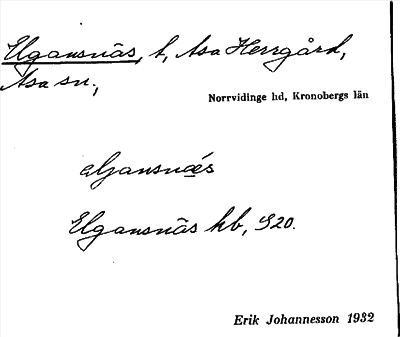 Elgansnäs, t, Asa Herrgård,
Asa sn.,
Norrvidinge hd, Kronobergs län
Elgansnäs kb, 920.
Erik Johannesson 1932